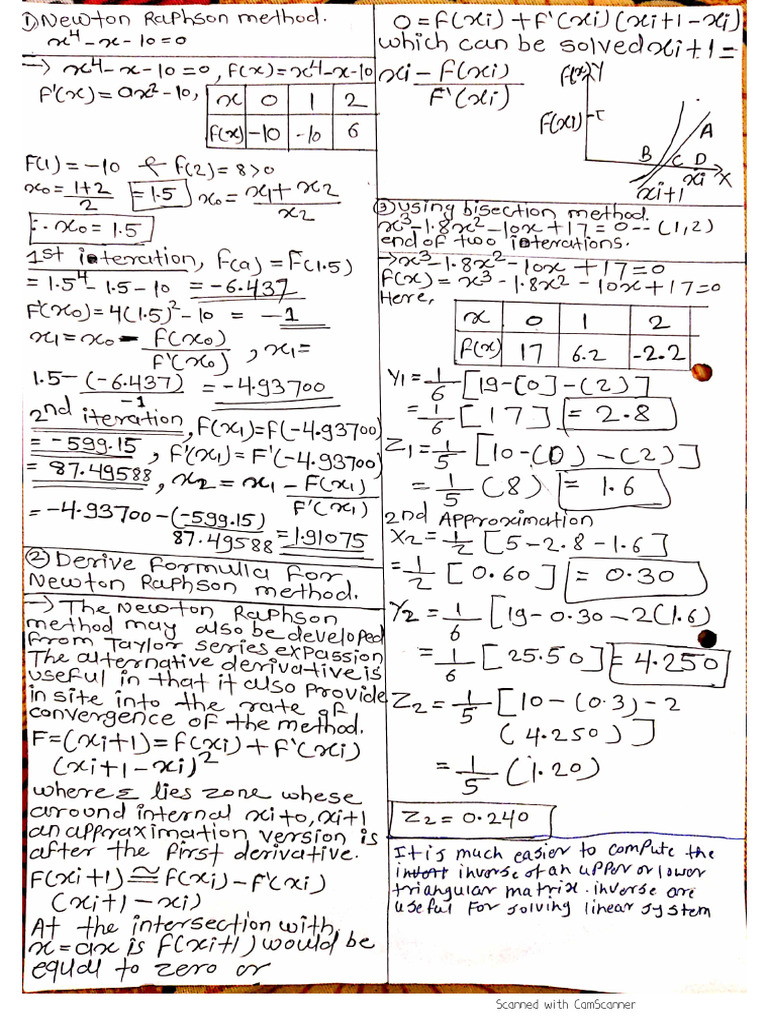 ① Newton Raphson method.
x⁴-x-10=0
→ x⁴-x-10=0, f(x)=x⁴-x-10
f'(x)=0x²-10,
x 0 1 2
f(x) -10 -10 6
f(1)=-10 & f(2)=8>0
x₀=1+2/2 =1.5 x₀=x₁+x₂/x₂
∴ x₀=1.5
1st interation, f(a)=F(1.5)
=1.5⁴-1.5-10 =-6.437
F'(x₀)=4(1.5)²-10 = -1
x₁=x₀-f(x₀)/f'(x₀), x₁=
1.5-(-6.437)/-1 =-4.93700
2nd iteration, F(x₁)=F(-4.93700)
=-599.15, F'(x₁)=F'(-4.93700)
=87.49588, x₂=x₁-F(x₁)/F'(x₁)
=-4.93700-(-599.15)/87.49588 =1.91075
② Derive formula for
Newton Raphson method.
→ The Newton Raphson
method may also be developed
from Taylor series expassion
The alternative derivative is
useful in that it also provide
in site into the rate of
convergence of the method.
F=(xi+1)=f(xi)+f'(xi)
(xi+1-xi)²
where Σ lies zone whese
around internal xi to, xi+1
an appraximation version is
after the first derivative.
F(xi+1)≅f(xi)-F'(xi)
(xi+1-xi)
At the intersection with
x=ax is f(xi+1) would be
equal to zero or
0=f(xi)+f'(xi)(xi+1-xi)
which can be solved xi+1=
xi-f(xi)/F'(xi)
f(x) Y
f(xi)
A
B C D
xi X
xi+1
③ using bisection method.
x³-1.8x²-10x+17=0--(1,2)
end of two interations.
→x³-1.8x²-10x+17=0
f(x)=x³-1.8x²-10x+17=0
Here,
x 0 1 2
f(x) 17 6.2 -2.2
Y₁=1/6[19-[0]-(2)]
=1/6[17] =2.8
Z₁=1/5[10-(0)-(2)]
=1/5(8) = 1.6
2nd Approximation
X₂=1/2[5-2.8-1.6]
=1/2[0.60] =0.30
Y₂=1/6[19-0.30-2(1.6)
=1/6[25.50]=4.250
Z₂=1/5[10-(0.3)-2
(4.250)]
=1/5(1.20)
Z₂=0.240
It is much easier to compute the
inverse of an upper or lower
triangular matrix. inverse are
useful for solving linear system
Scanned with CamScanner